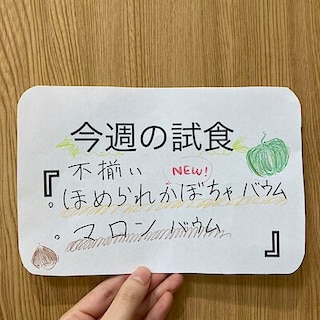 今週の試食
不揃い NEW!
『。ほめられかぼちゃバウム
。マロンバウム 』